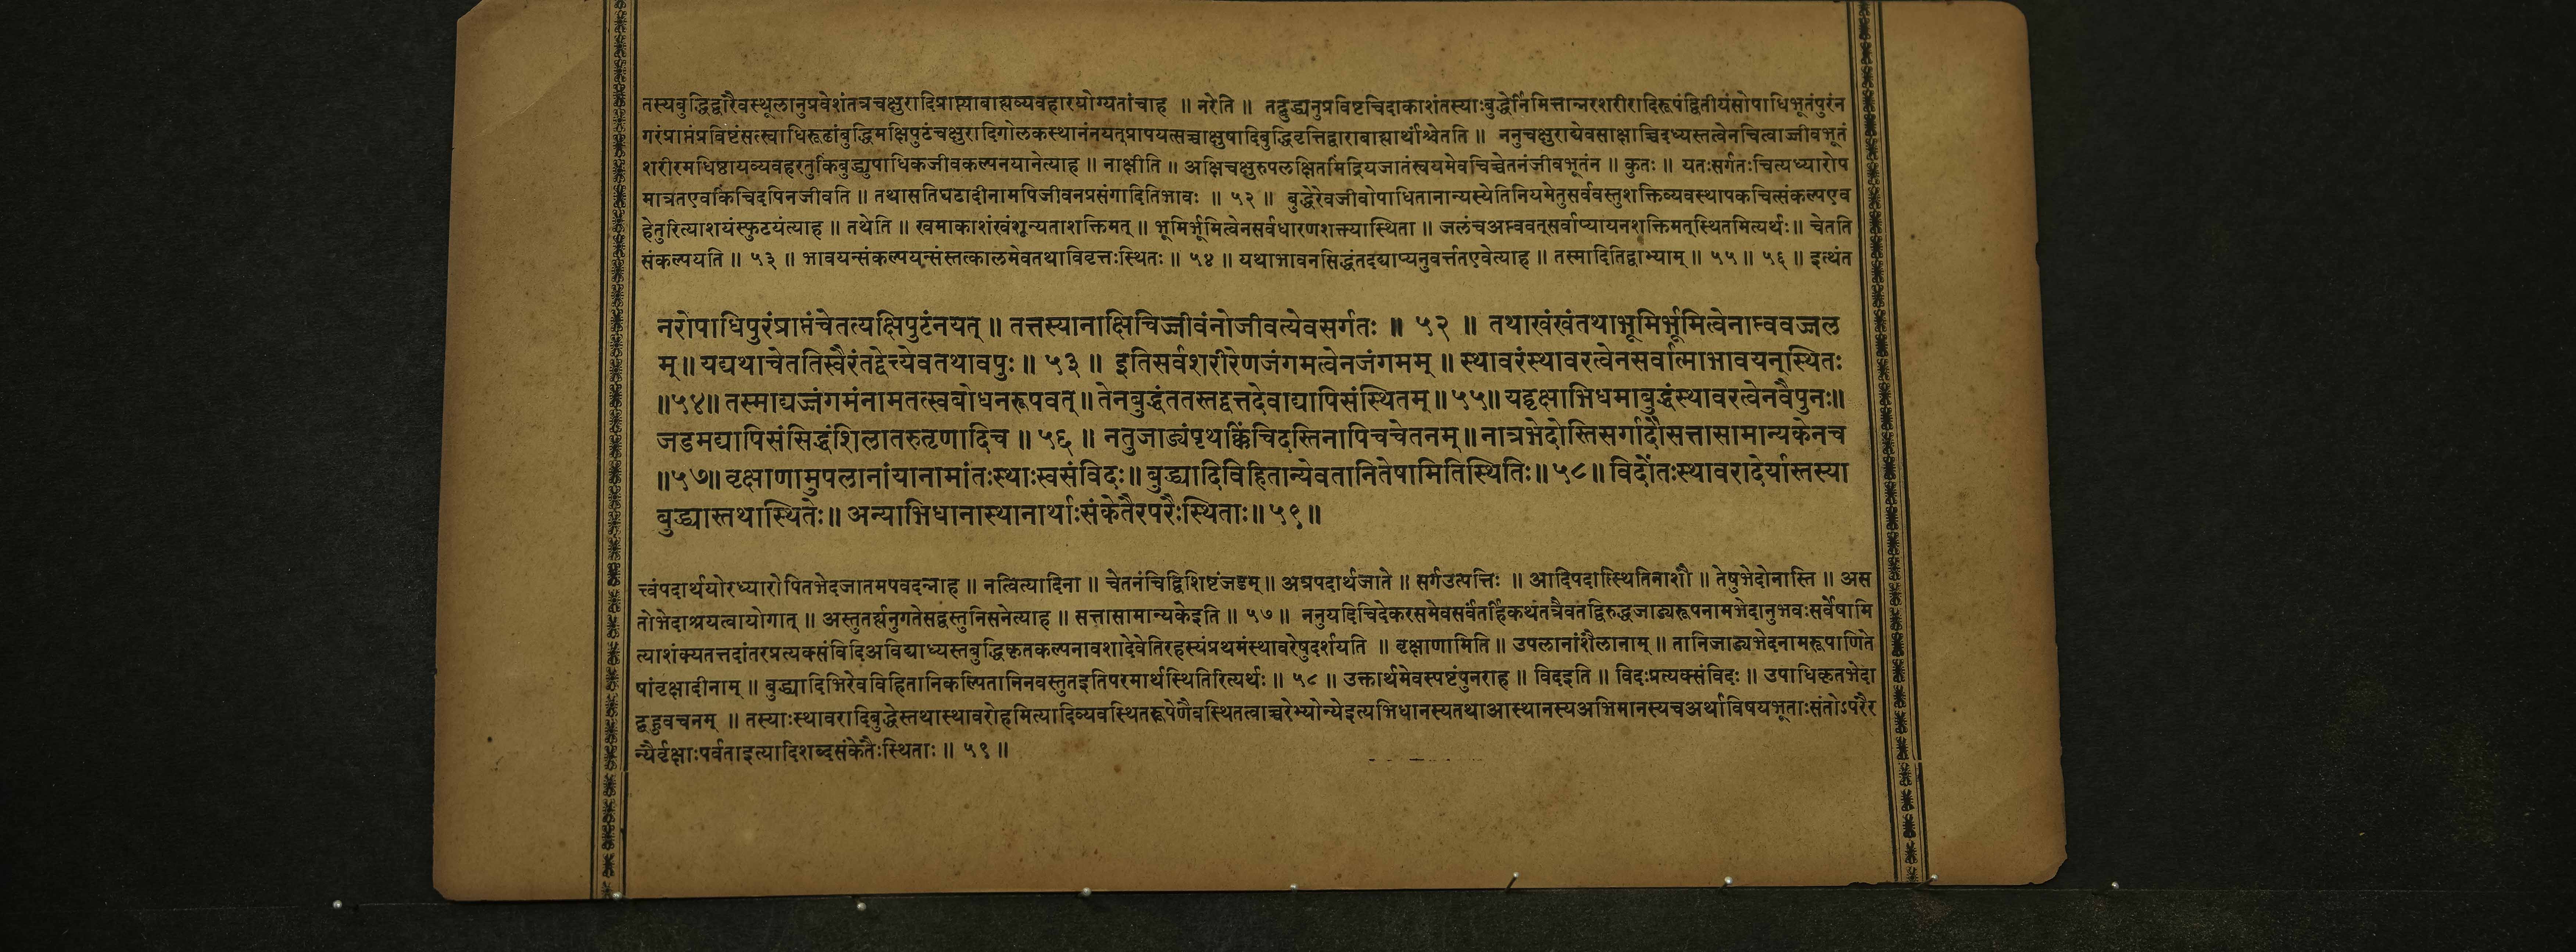 तस्यबुद्धिद्वारैवस्थूलानुप्रवेशंतत्रचक्षुरादिप्राप्त्याबाह्यव्यवहारयोग्यतांचाह ॥ नरेति ॥ तद्बुद्ध्यनुप्रविष्टचिदाकाशंतस्याःबुद्धेर्निमित्तान्नरशरीरादिरूपंद्वितीयंसोपाधिभूतंपुरंन
गरंप्राप्तंप्रविष्टंसत्स्वाधिरूढांबुद्धिमक्षिपुटंचक्षुरादिगोलकस्थानंनयत्प्रापयत्सच्चाक्षुषादिबुद्धिवृत्तिद्वाराबाह्यार्थांश्चेतति ॥ ननुचक्षुराद्येवसाक्षाच्चिदध्यस्तत्वेनचित्वाज्जीवभूतं
शरीरमधिष्ठायव्यवहरतुकिंबुद्ध्युपाधिकजीवकल्पनयानेत्याह ॥ नाक्षीति ॥ अक्षिचक्षुरुपलक्षितमिंद्रियजातंस्वयमेवचिच्चेतनंजीवभूतंन ॥ कुतः ॥ यतःसर्गतःचित्यध्यारोप
मात्रतएवकिंचिदपिनजीवति ॥ तथासतिघटादीनामपिजीवनप्रसंगादितिभावः ॥ ५२ ॥ बुद्धेरेवजीवोपाधितानान्यस्येतिनियमेतुसर्ववस्तुशक्तिव्यवस्थापकचित्संकल्पएव
हेतुरित्याशयंस्फुटयंत्याह ॥ तथेति ॥ खमाकाशंखंशून्यताशक्तिमत् ॥ भूमिर्भूमित्वेनसर्वधारणशक्त्यास्थिता ॥ जलंचअप्त्ववत्सर्वाप्यायनशक्तिमत्स्थितमित्यर्थः ॥ चेतति
संकल्पयति ॥ ५३ ॥ भावयन्संकल्पयन्संस्तत्कालमेवतथाविवृत्तःस्थितः ॥ ५४ ॥ यथाभावनसिद्धंतदद्याप्यनुवर्त्ततएवेत्याह ॥ तस्मादितिद्वाभ्याम् ॥ ५५ ॥ ५६ ॥ इत्थंत
नरोपाधिपुरंप्राप्तंचेतत्यक्षिपुटंनयत् ॥ तत्तस्यानाक्षिचिज्जीवंनोजीवत्येवसर्गतः ॥ ५२ ॥ तथाखंखंतथाभूमिर्भूमित्वेनाप्त्ववज्जल
म् ॥ यद्यथाचेततिस्वैरंतद्वेत्त्येवतथावपुः ॥ ५३ ॥ इतिसर्वशरीरेणजंगमत्वेनजंगमम् ॥ स्थावरंस्थावरत्वेनसर्वात्माभावयन्स्थितः
॥५४॥ तस्माद्यज्जंगमंनामतत्स्वबोधनरूपवत् ॥ तेनबुद्धंततस्तद्वत्तदेवाद्यापिसंस्थितम् ॥ ५५॥ यद्वृक्षाभिधमाबुद्धंस्थावरत्वेनवैपुनः॥
जडमद्यापिसंसिद्धंशिलातरुतृणादिच ॥ ५६ ॥ नतुजाड्यंपृथक्किंचिदस्तिनापिचचेतनम् ॥ नात्रभेदोस्तिसर्गादौसत्तासामान्यकेनच
॥५७॥ वृक्षाणामुपलानांयानामांतःस्थाःस्वसंविदः॥ बुद्ध्यादिविहितान्येवतानितेषामितिस्थितिः॥ ५८॥ विदोंतःस्थावरादेर्यास्तस्या
बुद्ध्यास्तथास्थितेः॥ अन्याभिधानास्थानार्थाःसंकेतैरपरैःस्थिताः॥ ५९॥
त्त्वंपदार्थयोरध्यारोपितभेदजातमपवदन्नाह ॥ नत्वित्यादिना ॥ चेतनंचिद्विशिष्टंजडम् ॥ अत्रपदार्थजाते ॥ सर्गउत्पत्तिः ॥ आदिपदात्स्थितिनाशौ ॥ तेषुभेदोनास्ति ॥ अस
तोभेदाश्रयत्वायोगात् ॥ अस्तुतर्ह्यनुगतेसद्वस्तुनिसनेत्याह ॥ सत्तासामान्यकेइति ॥ ५७ ॥ ननुयदिचिदेकरसमेवसर्वंतर्हिकथंतत्रैवतद्विरुद्धजाड्यरूपनामभेदानुभवःसर्वेषामि
त्याशंक्यतत्तदांतरप्रत्यक्संविदिअविद्याध्यस्तबुद्धिकृतकल्पनावशादेवेतिरहस्यंप्रथमंस्थावरेषुदर्शयति ॥ वृक्षाणामिति ॥ उपलानांशैलानाम् ॥ तानिजाड्यभेदनामरूपाणिते
षांवृक्षादीनाम् ॥ बुद्ध्यादिभिरेवविहितानिकल्पितानिनवस्तुतइतिपरमार्थस्थितिरित्यर्थः ॥ ५८ ॥ उक्तार्थमेवस्पष्टंपुनराह ॥ विदइति ॥ विदःप्रत्यक्संविदः ॥ उपाधिकृतभेदा
द्बहुवचनम् ॥ तस्याःस्थावरादिबुद्धेस्तथास्थावरोहमित्यादिव्यवस्थितरूपेणैवस्थितत्वाच्चरेभ्योन्येइत्यभिधानस्यतथाआस्थानस्यअभिमानस्यचअर्थाविषयभूताःसंतोऽपरैर
न्यैर्वृक्षाःपर्वताइत्यादिशब्दसंकेतैःस्थिताः ॥ ५९ ॥